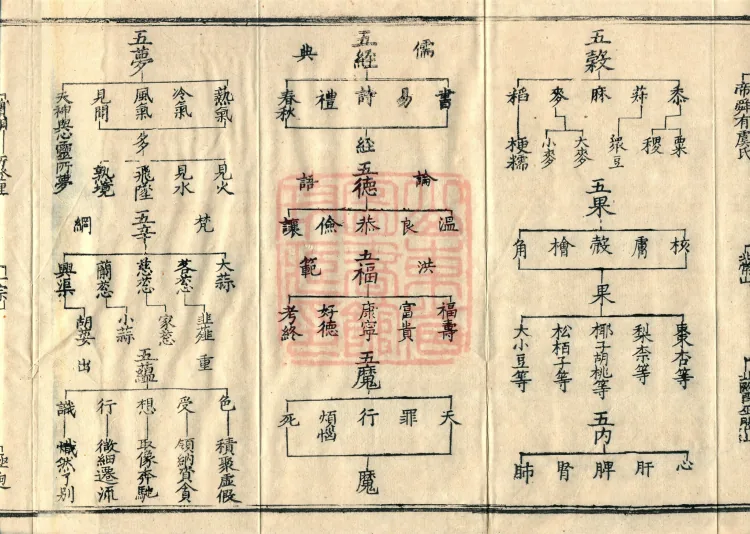 五穀
黍 蔴 麻 麥 稻
粟 稷 豆 大麥 小麥 粳糯
五果
核 膚 殼 檜 角
果
棗杏等 梨柰等 椰子胡桃等 松栢子等 大小豆等
五內
心 肝 脾 腎 肺
儒典
五經
書 易 詩 禮 春秋
經
論語
五德
溫 良 恭 儉 讓
洪範
五福
福壽 富貴 康寧 好德 考終
五魔
天 罪 行 煩惱 死
魔
五夢
熱氣 冷氣 風氣 見聞 天神與心靈所夢
多
見火 見水 飛墜 熟境
梵網
五辛
大蒜 茖葱 慈葱 蘭葱 興渠
韭薤 家葱 小蒜 胡荽
重出
五蘊
色 受 想 行 識
積聚虛假 領納 取像奔馳 微細遷流 熾然了別
帝舜有虞氏